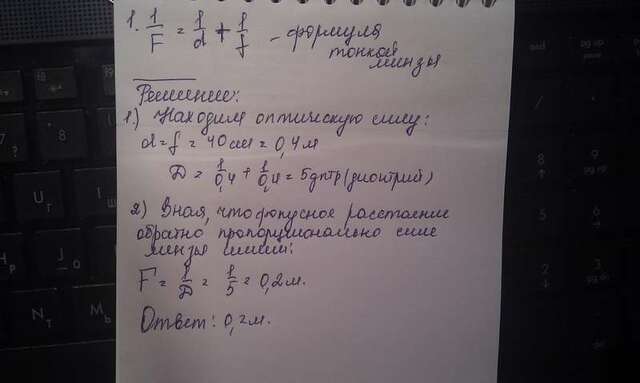 1. 1/F = 1/d + 1/f - формула
тонкой
линзы
Решение:
1.) Находим оптическую силу:
d = f = 40 см = 0,4 м
D = 1/0,4 + 1/0,4 = 5 дптр (диоптрий)
2) Зная, что фокусное расстояние
обратно пропорционально силе
линзы имеем:
F = 1/D = 1/5 = 0,2 м.
Ответ: 0,2 м.